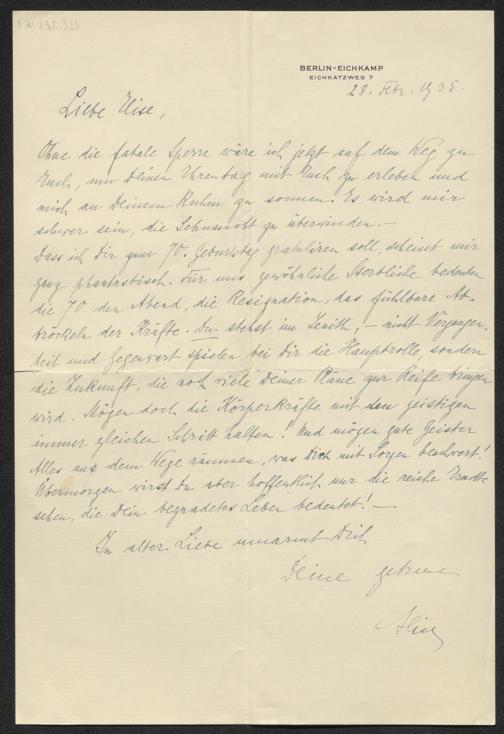 I.N. 232.323
BERLIN-EICHKAMP
EICHKATZWEG 7
28. Febr. 1935.
Liebe Elise,
Ohne die fatale Sperre wäre ich jetzt auf dem Weg zu
Euch, um Deinen Ehrentag mit Euch zu erleben und
mich an Deinem Ruhm zu sonnen. Es wird mir
schwer sein, die Sehnsucht zu überwinden. –
Dass ich Dir zum 70. Geburtstag gratuliren soll, scheint mir
ganz phantastisch. Für uns gewöhnliche Sterbliche bedeuten
die 70 den Abend, die Resignation, das fühlbare Ab-
bröckeln der Kräfte. Du stehst im Zenith, – nicht Vergangen-
heit und Gegenwart spielen bei Dir die Hauptrolle, sondern
die Zukunft, die noch viele Deiner Pläne zur Reife bringen
wird. Mögen doch die Körperkräfte mit den geistigen
immer gleichen Schritt halten! Und mögen gute Geister
Alles aus dem Wege räumen, was Dich mit Sorgen beschwert!
Übermorgen wirst Du aber hoffentlich nur die reiche Erndte
sehen, die Dein begnadetes Leben bedeutet! –
In alter Liebe umarmt Dich
Deine getreue